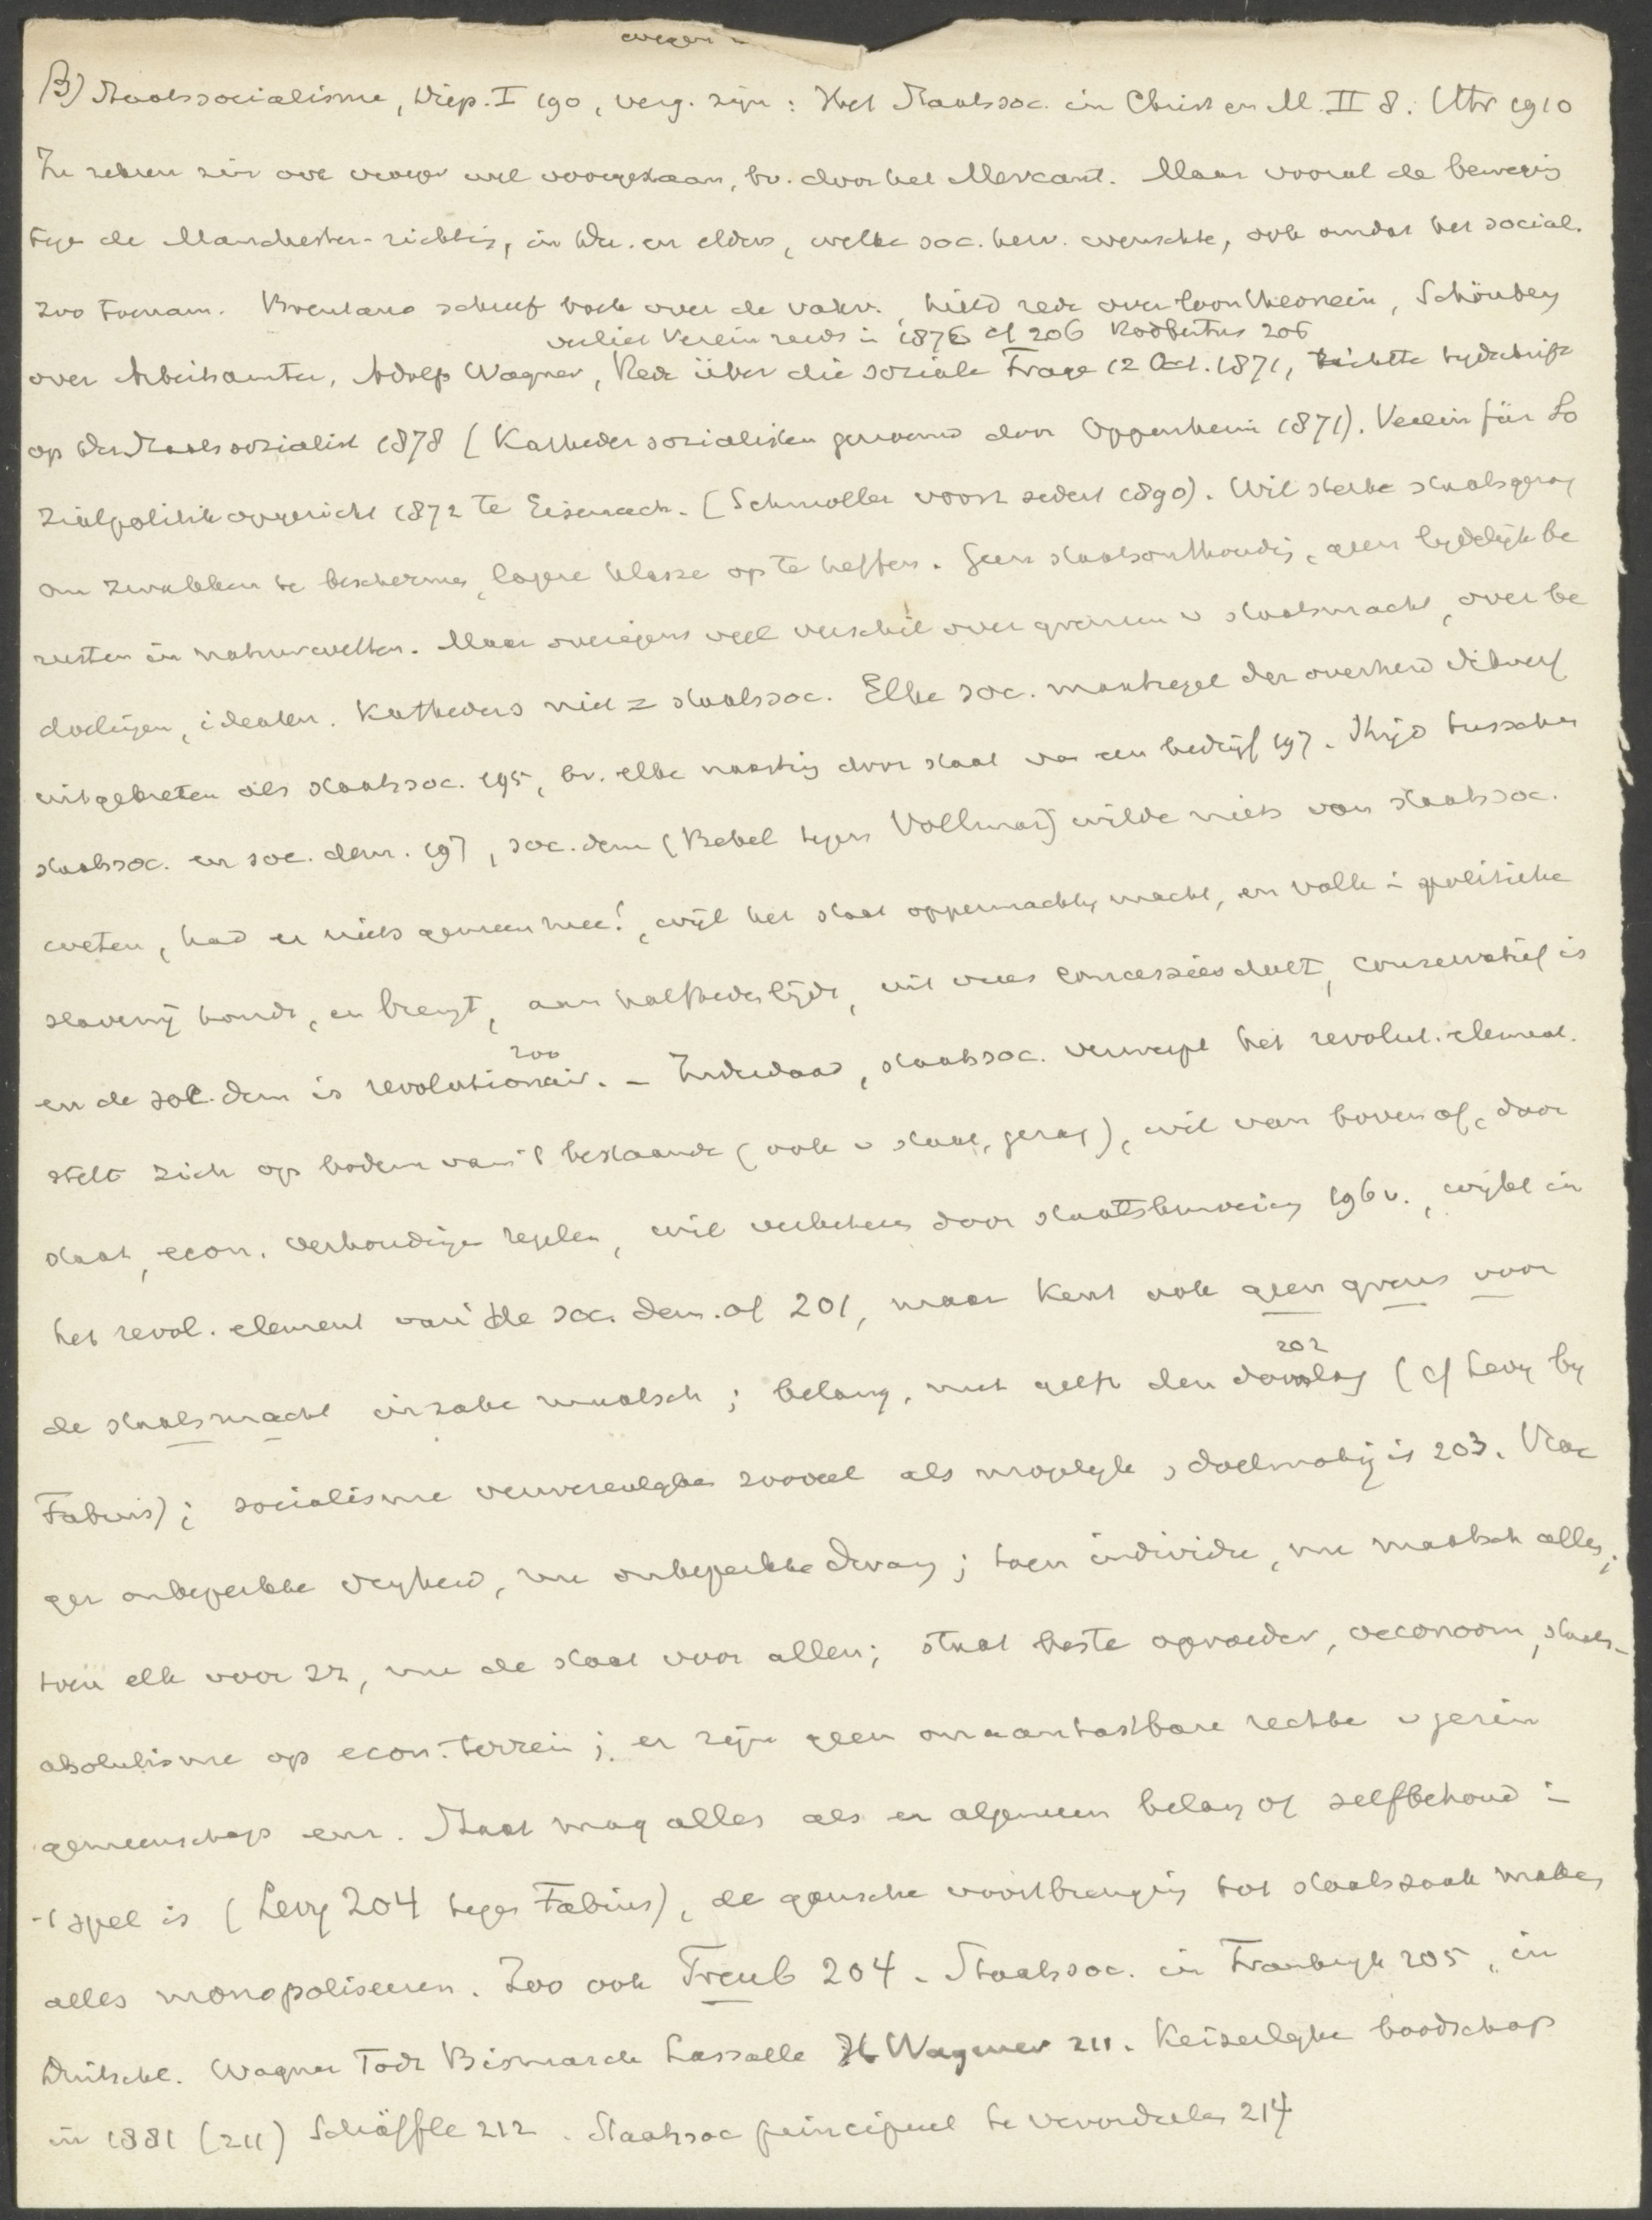 B) Staatssocialisme, Diep. I 190, verg. zijn: Het Staatssoc. in Christ en M. II 8. Utr 1910
In zekeren zin ook vroeger wel voorgestaan, bv. door het Mercant. Maar vooral de bewegig
tege de Manchester-richtig, in Du. en elders, welke soc. herv. wenschte, ook omdat het social.
zoo toenam. Brentano schreef boek over de vakv., hield rede over loontheorieën, Schönberg
verliet Verein reeds in 1876 cf 206 Rodbertus 206
over Arbeitsamter, Adolp Wagner, Rede über die soziale Frage 12 Oct. 1871, richtte tydschrift
op der Staatssozialist 1878 (Kathedersozialisten genoemd door Oppenheim 1871). Verein für So
zialpolitik opgericht 1872 te Eisenach. (Schmoller voorz sedert 1890). Wil sterke staatsgezag
om zwakken te beschermen, lagere klasse op te heffen. Geen staatsonthoudig, geen lydelijk be
rusten in natuurwetten. Maar overigens veel verschil over grenzen v staatsmacht, over be
doeligen, idealen. Katheders niet = staatssoc. Elke soc. maatregel der overheid dikwerf
uitgekreten als staatssoc. 195, bv. elke naasting door staat van een bedrijf 197. Strijd tusschen
staatssoc. en soc. dem. 197, soc. dem (Bebel tegen Vollmar) wilde niets van staatssoc.
weten, had er niets gemeen mee!, wijl het staat oppermachtig macht, en volk in politieke
slaverny houdt, en brengt, aan halfheden lijdt, uit vrees concessies doet, conservatief is
200
en de soc. dem is revolutionair. - Inderdaad, staatssoc. verwerpt het revolut. element.
stelt zich op bodem van 't bestaande (ook v staat, gezag), wil van boven af, door
staat, econ. verhoudingen regelen, wil verbeteren door staatsbemoeiing 196v., wijkt in
het revol. element van de soc. dem. af 201, maar kent ook geen grens voor
202
de staatsmacht inzake maatsch; belang. nut geeft den doorslag (cf Levy by
Fabius); socialisme verwezenlyken zooveel als mogelyk, doelmatig is 203. Vroe
ger onbeperkte vryheid, nu onbeperkte dwang; toen individu, nu maatsch alles;
toen elk voor zz, nu de staat voor allen; staat beste opvoeder, oeconoom, staats-
absolutisme op econ. terrein; er zijn geen onaantastbare rechte v gezin
gemeenschap enz. Staat mag alles als er algemeen belang of zelfbehoud in
't spel is (Levy 204 tegen Fabius), de gansche voortbrenging tot staatszaak maken
alles monopoliseeren. Zoo ook Treub 204. Staatssoc. in Frankryk 205, in
Duitschl. Wagner Todt Bismarck Lassalle H Wagener 211. Keizerlyke boodschap
in 1881 (211) Schäffle 212. Staatssoc principieel te veroordeelen 214